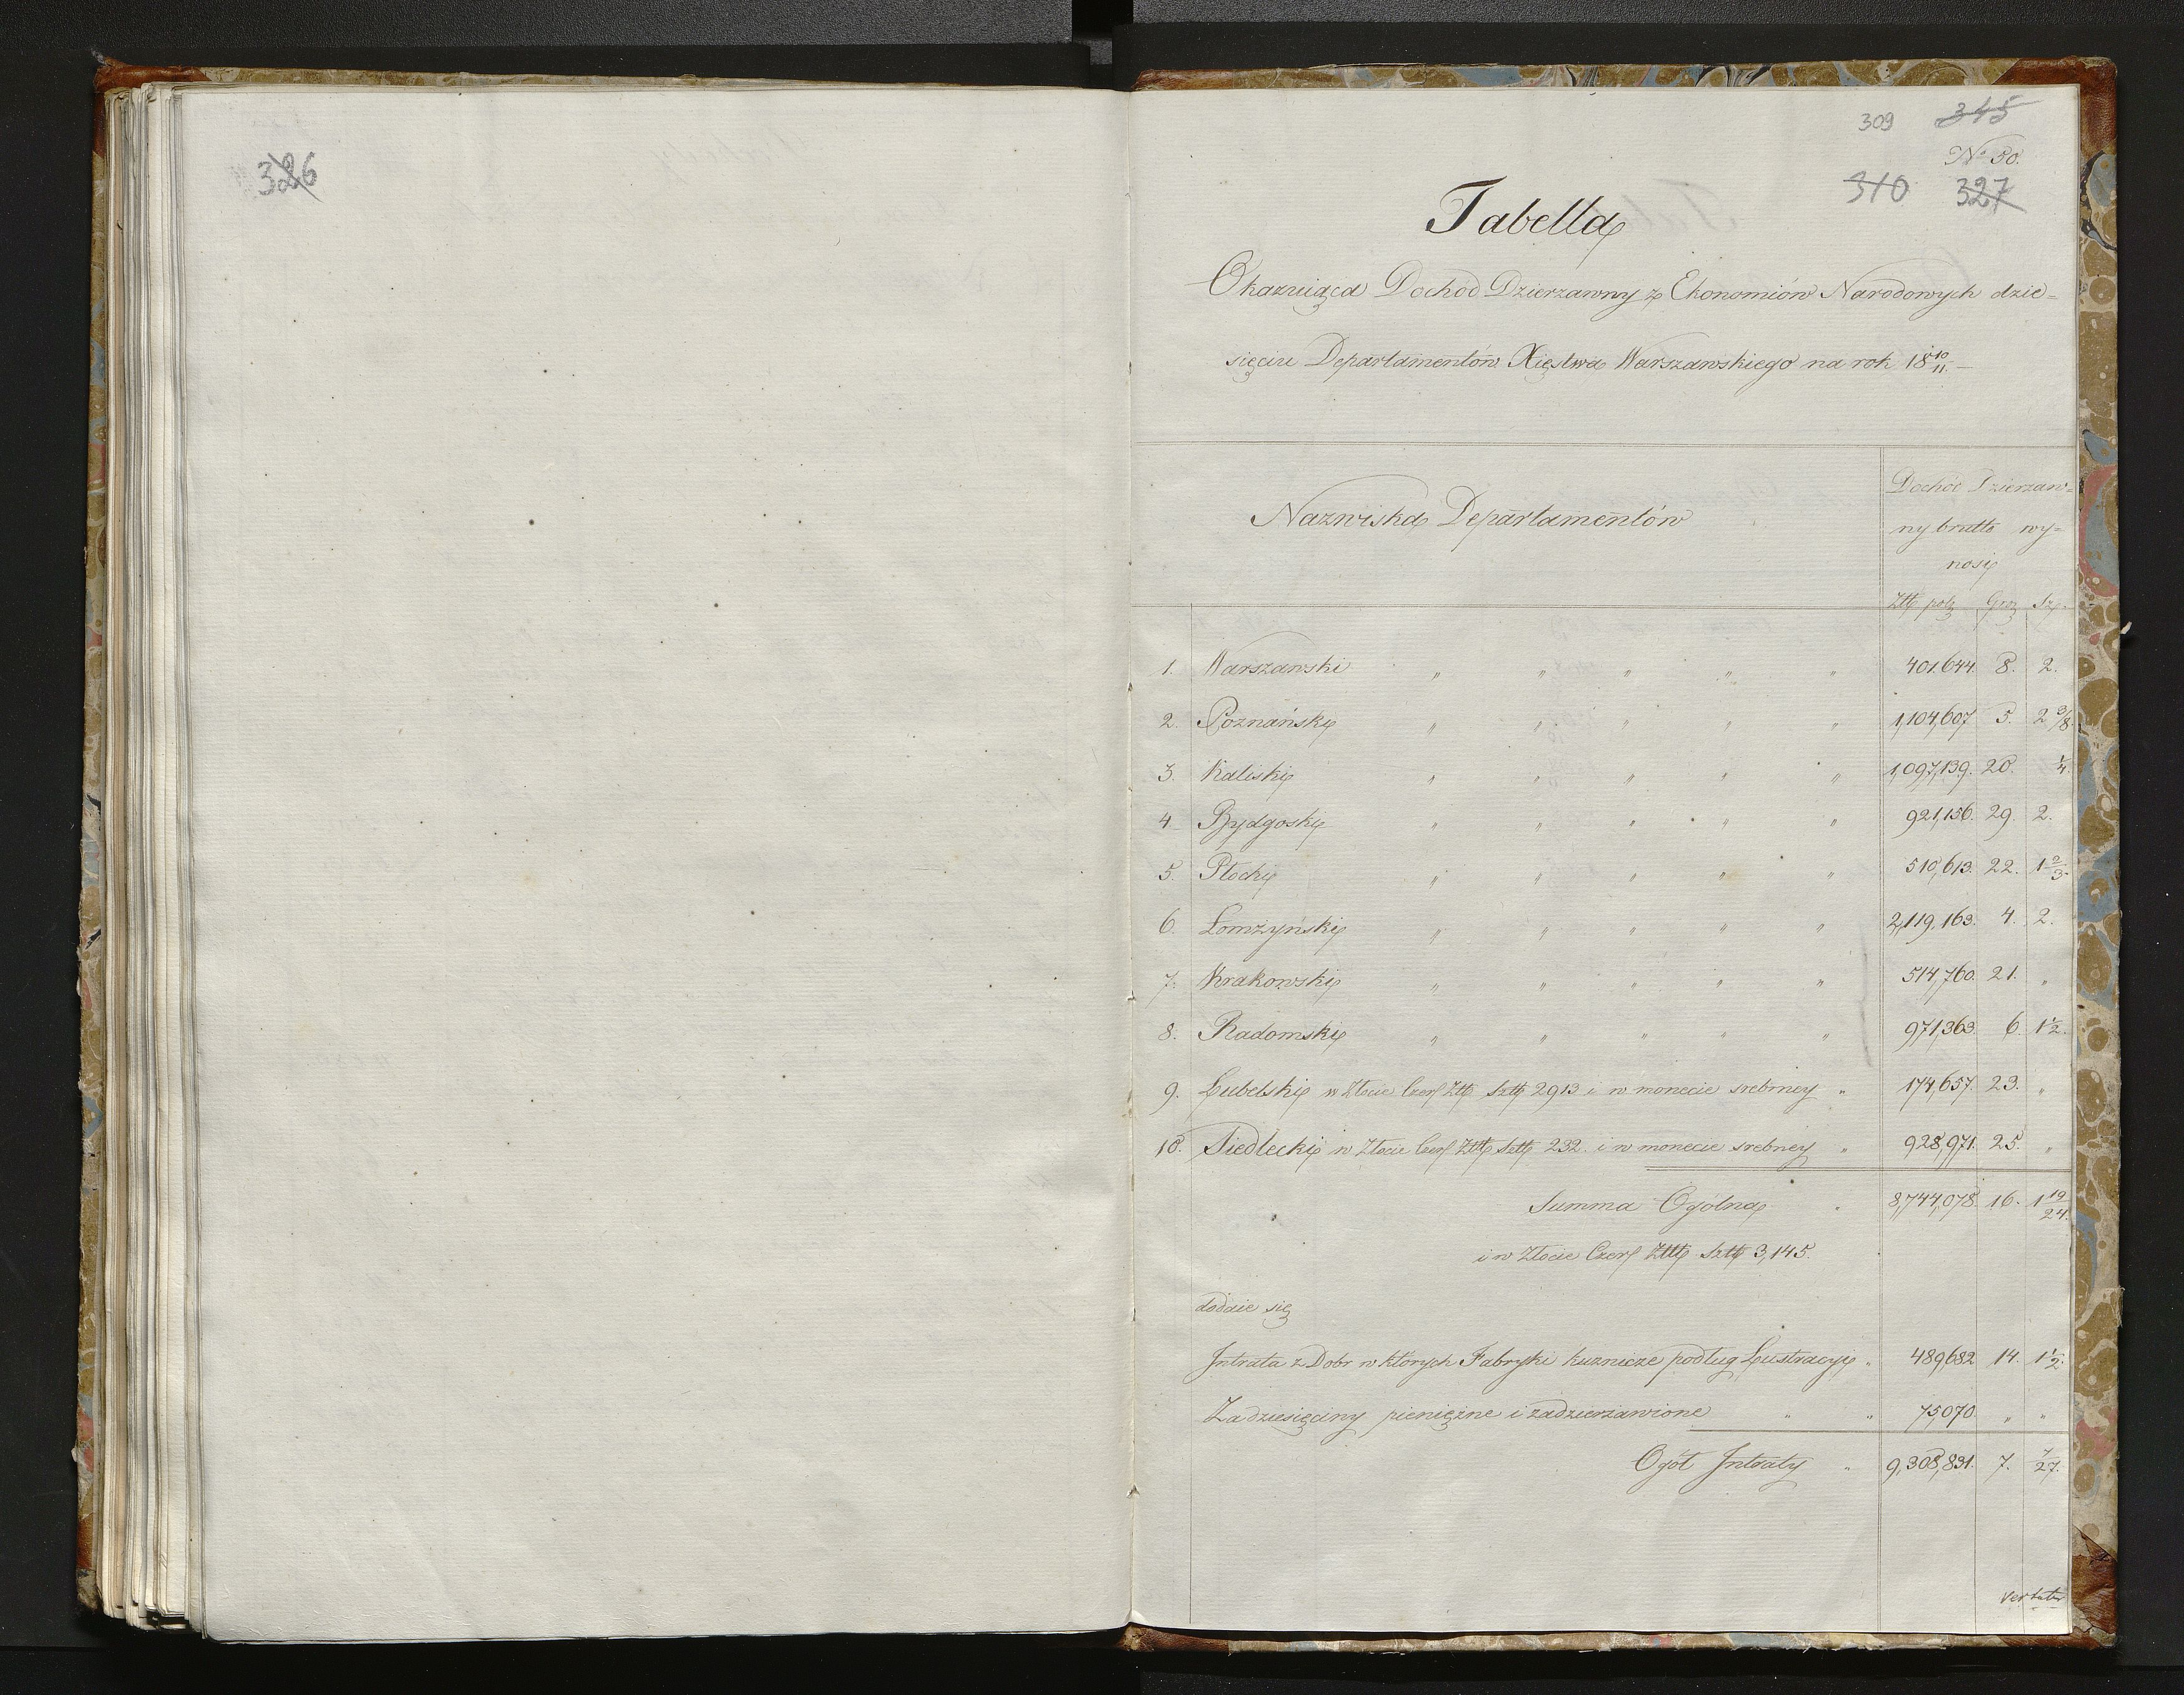 326
309 345
No 30.
310 327
Tabella
Okazuiąca Dochod Dzierzawny z Ekonomiów Narodowych dzie=
sięciu Departamentów Xięstwa Warszawskiego na rok 18 10/11. –
Nazwiska Departamentów
Dochod Dzierzaw=
ny brutto wy=
nosi
Ztt pol. Gro. Sz.
1. Warszawski " " " " " 401.644. 8. 2.
2. Poznański " " " " " 1,104,607 5. 2 3/8.
3. Kaliski " " " " " 1,097,139. 20. 1/4.
4. Bydgoski " " " " " 921,156. 29. 2.
5. Płocki " " " " " 510,613. 22. 1 2/3.
6. Łomżyński " " " " " 2,119,163. 4. 2.
7. Krakowski " " " " " 514,760. 21. "
8. Radomski " " " " " 971,363. 6. 1 1/2.
9. Lubelski w Złocie Czer Ztt Sztt 2913 i w monecie srebrney " 174,657. 23. "
10. Siedlecki w Złocie Czer Ztt Sztt 232. i w monecie srebrney " 928,971. 25. "
Summa Ogólna " 8,744,078. 16. 1 19/24.
i w Złocie Czer Zttt Sztt 3,145.
dodaie się
Intrata z Dobr w których Fabryki kuznicze podług Lustracyi " 489,682 14. 1 1/2.
Za dziesięciny pieniężne i zadzierżawione " " 75,070 " "
Ogół Intraty " 9,308,831. 7. 7/27.
Vertatur